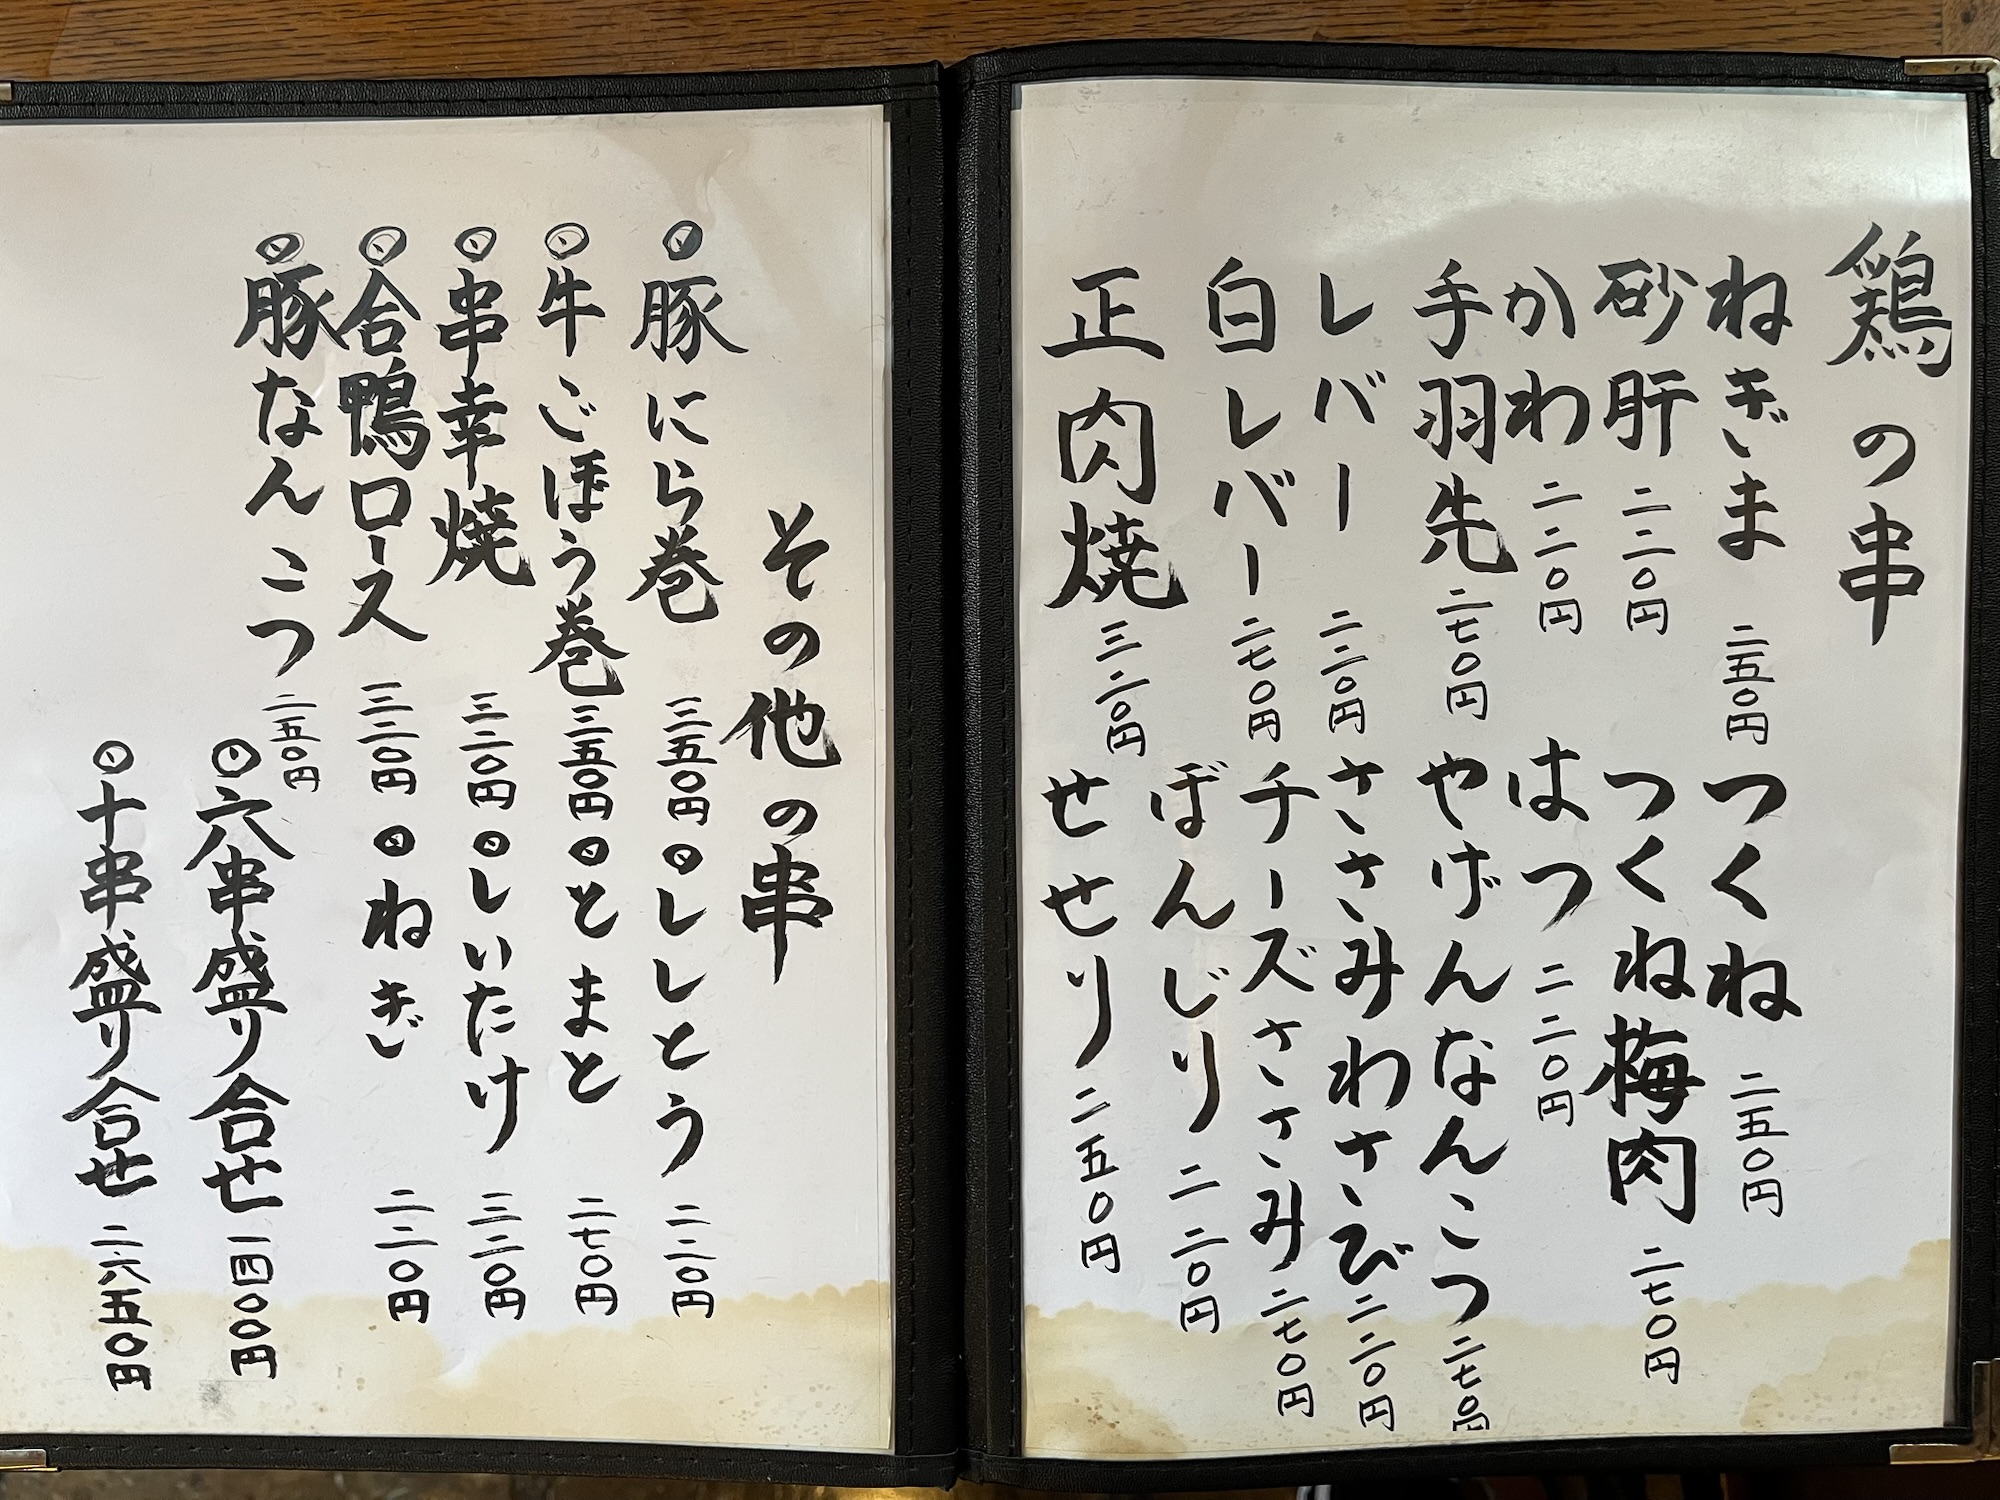 鶏の串
ねぎま 二五〇円
つくね 二五〇円
砂肝 二二〇円
つくね梅肉 二七〇円
かわ 二二〇円
はつ 二二〇円
手羽先 二七〇円
やげんなんこつ 二七〇円
レバー 二二〇円
ささみわさび 二二〇円
白レバー 二七〇円
チーズささみ 二七〇円
ぼんじり 二二〇円
正肉焼 三二〇円
せせり 二五〇円
その他の串
豚にら巻 三五〇円
ししとう 二二〇円
牛ごぼう巻 三五〇円
とまと 二七〇円
串幸焼 三二〇円
しいたけ 三二〇円
合鴨ロース 三二〇円
ねぎ 二二〇円
豚なんこつ 二五〇円
六串盛り合せ 一四〇〇円
十串盛り合せ 二六五〇円